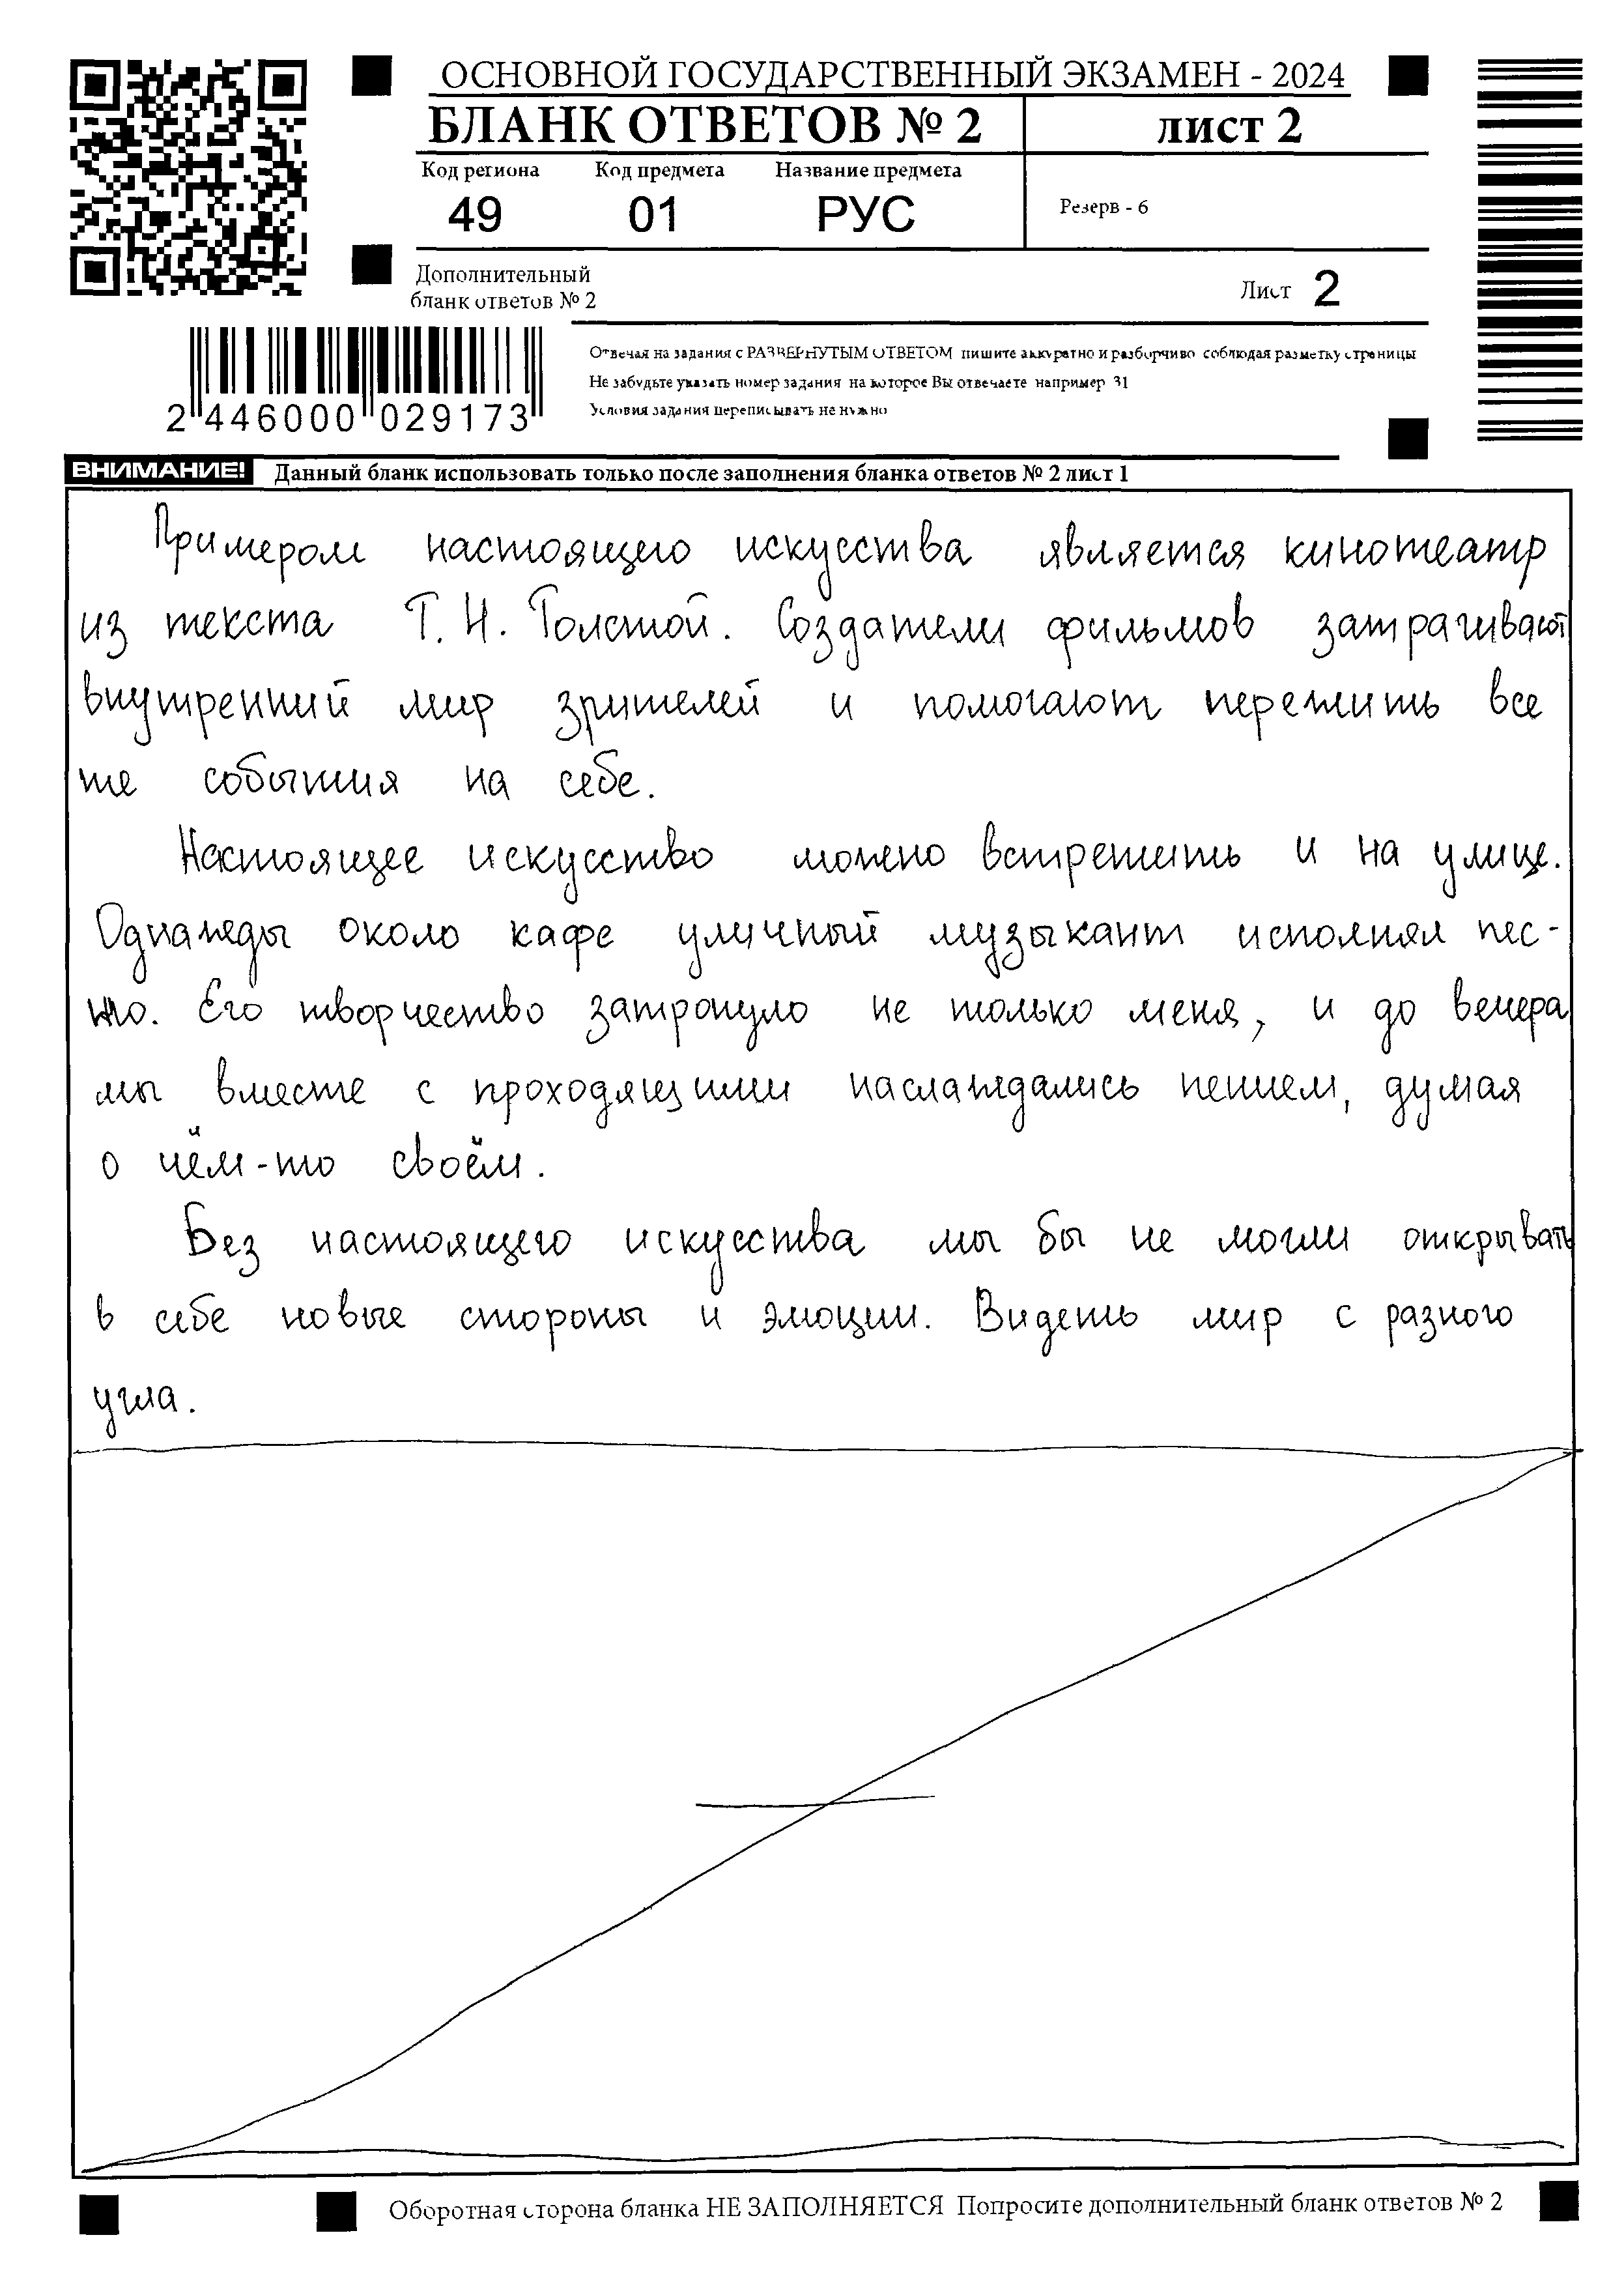 ОСНОВНОЙ ГОСУДАРСТВЕННЫЙ ЭКЗАМЕН - 2024
БЛАНК ОТВЕТОВ № 2 лист 2
Код региона Код предмета Название предмета
49 01 РУС
Резерв - 6
Дополнительный
бланк ответов № 2
Лист 2
Отвечая на задания с РАЗВЕРНУТЫМ ОТВЕТОМ пишите аккуратно и разборчиво соблюдая разметку страницы
Не забудьте указать номер задания на которое Вы отвечаете например 31
Условия задания переписывать не нужно
2 446000 029173
ВНИМАНИЕ! Данный бланк использовать только после заполнения бланка ответов № 2 лист 1
Примером настоящего искусства является кинотеатр
из текста Т. Н. Толстой. Создатели фильмов затрагивают
внутренний мир зрителей и помогают пережить все
же события на себе.
Настоящее искусство можно встретить и на улице.
Однажды около кафе уличный музыкант исполнял пес-
ню. Его творчество затронуло не только меня, и до вечера
мы вместе с проходящими наслаждались пением, думая
о чём-то своём.
Без настоящего искусства мы бы не могли открывать
в себе новые стороны и эмоции. Видеть мир с разного
угла.
Оборотная сторона бланка НЕ ЗАПОЛНЯЕТСЯ Попросите дополнительный бланк ответов № 2